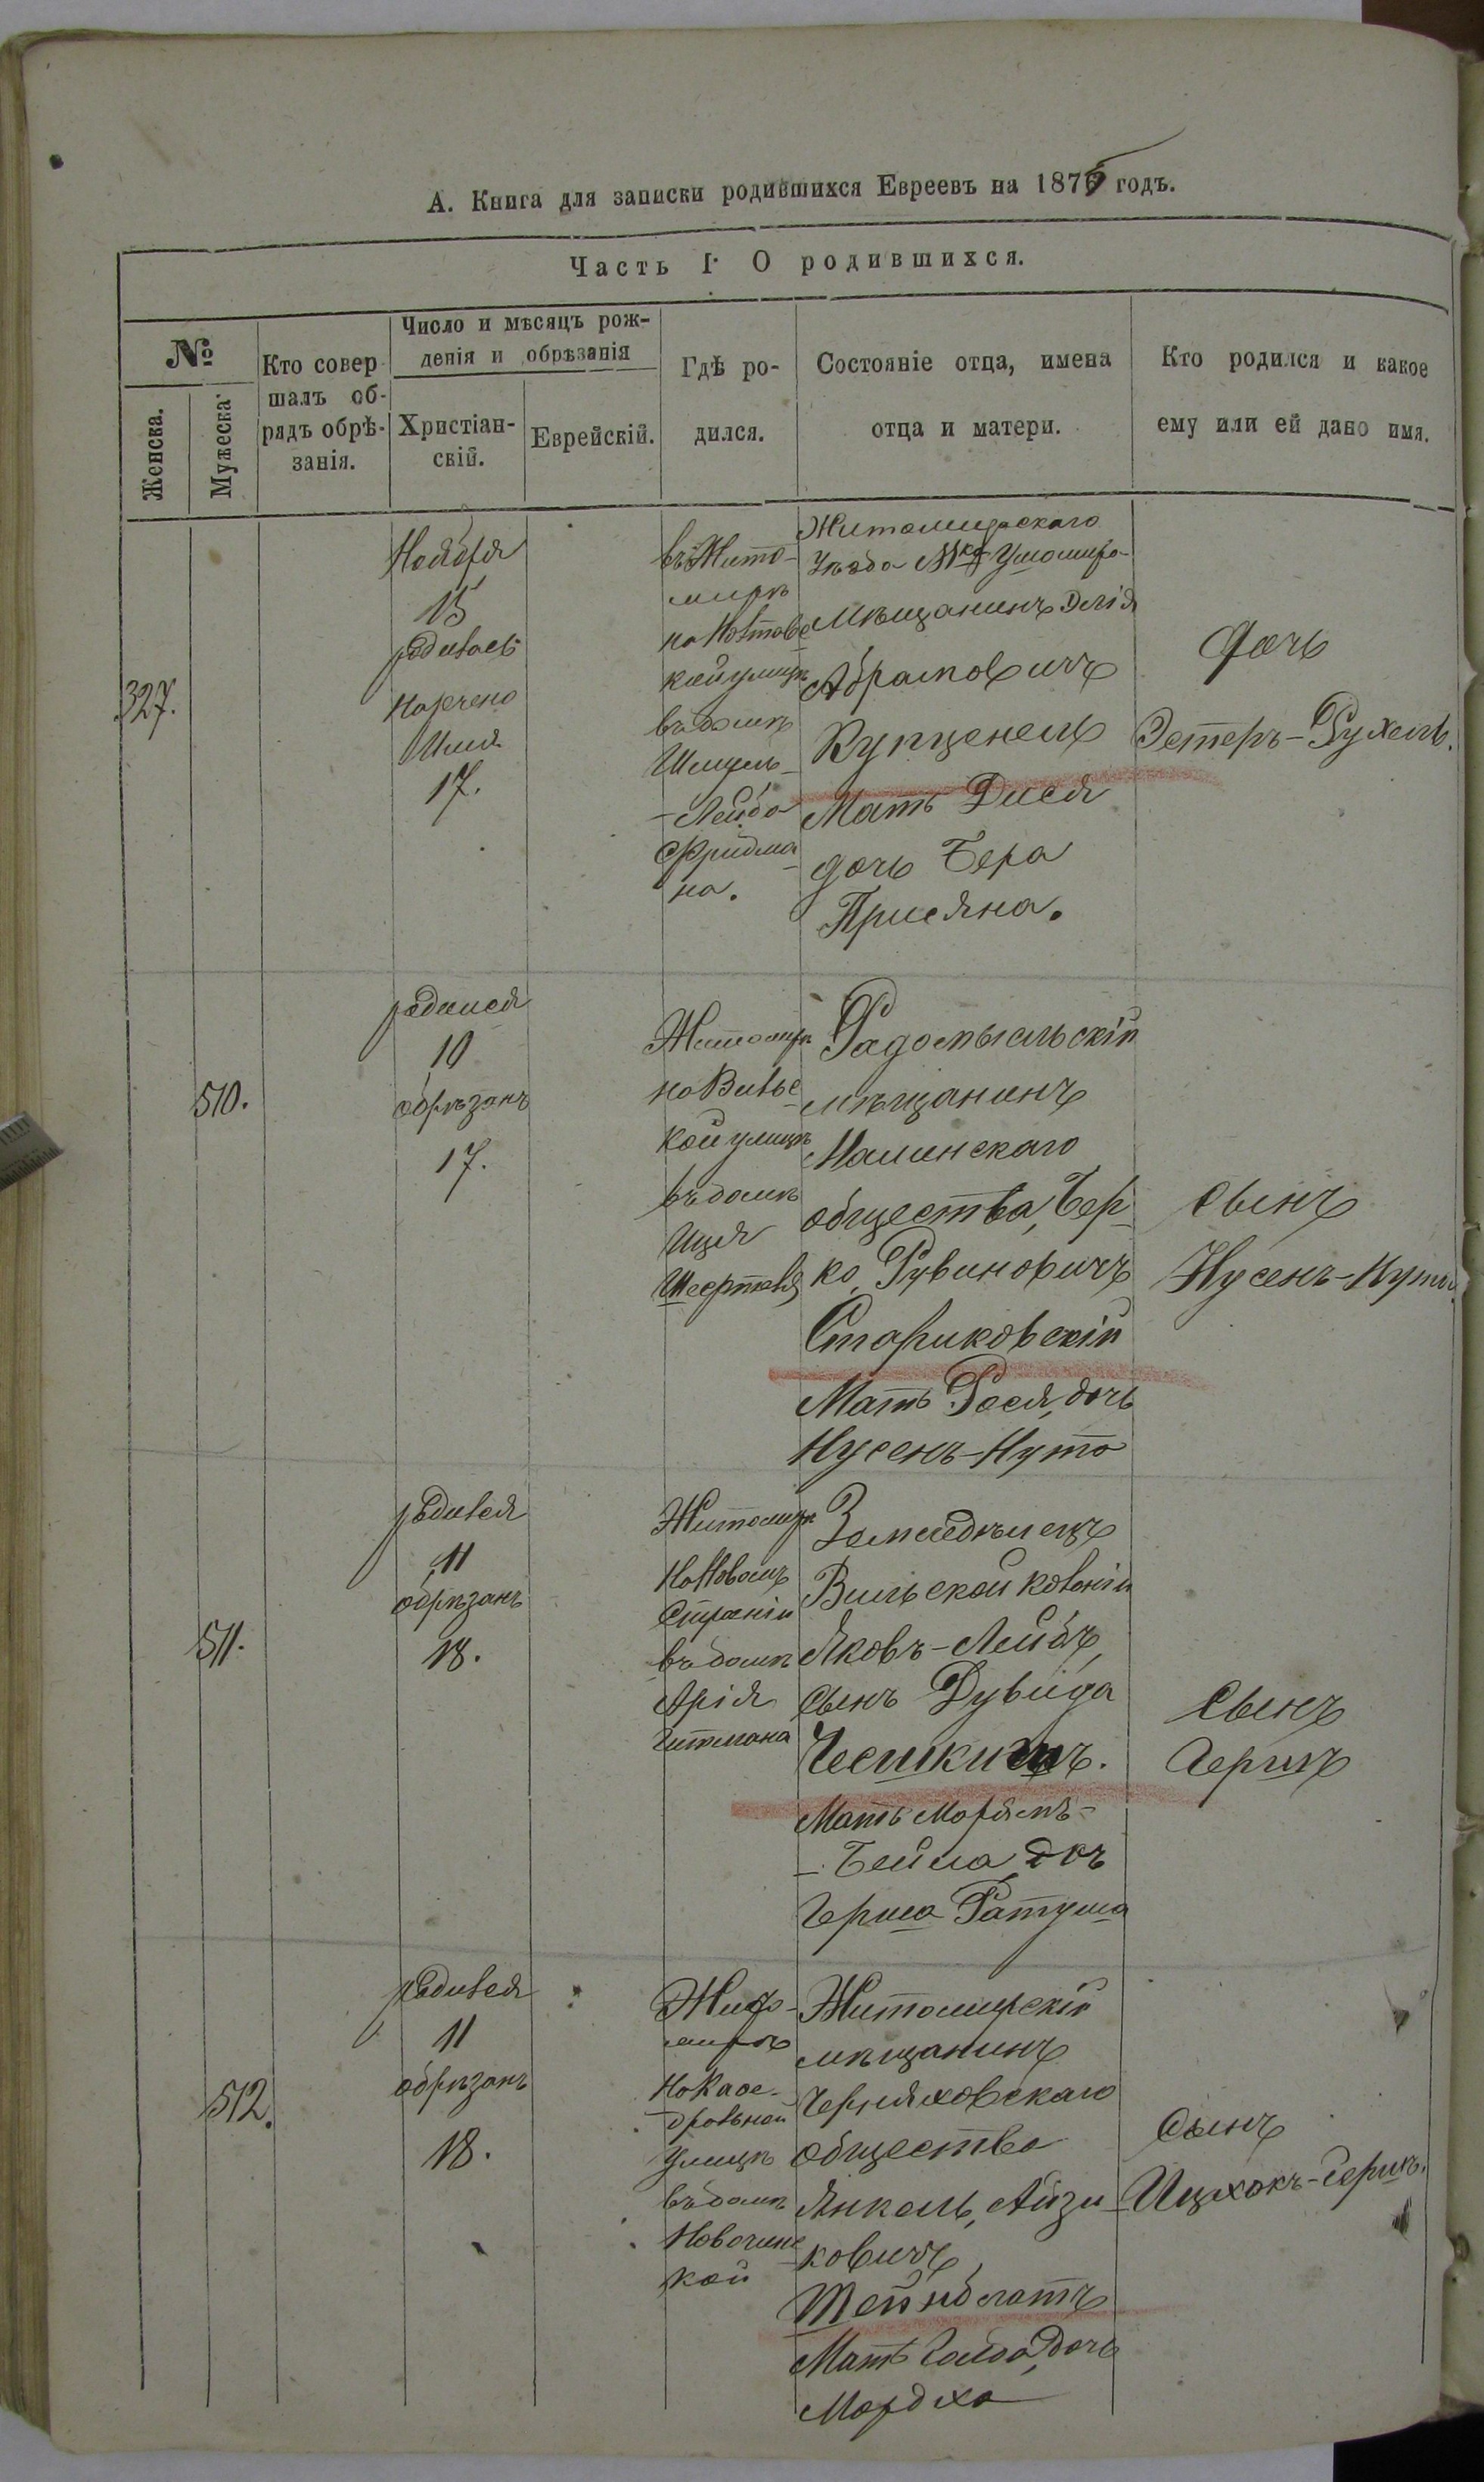 А. Книга для записки родившихся Евреевъ на 1875 годъ.
Часть I. О родившихся.
№
Женска.
Мужеска.
Кто совер-
шалъ об-
рядъ обрѣ-
занія.
Число и мѣсяцъ рож-
денія и обрѣзанія
Христіан-
скій.
Еврейскій.
Гдѣ ро-
дился.
Состояніе отца, имена
отца и матери.
Кто родился и какое
ему или ей дано имя.
327.
Ноября
15
родилась
наречено
имя
17.
въ Жито-
мирѣ
кой улицѣ
въ домѣ
Лейба
Фридма-
на.
Житомирскаго
Уѣзда Мка Ушомира
Мѣщанинъ
Абрамовичъ
Купценель
Мать Дися
дочь Бера
Присяна.
Дочь
Эстеръ-Рухель.
510.
родился
10
обрѣзанъ
17.
Житомирѣ
на Вильс-
кой улицѣ
въ домѣ
Радомысльскій
мѣщанинъ
Малинскаго
общества, Бер-
ко Рувиновичъ
Стариковскій
Мать Рося, дочь
Нусенъ-Нута
Сынъ
Нусенъ-Нута
511.
родился
11
обрѣзанъ
18.
Житомирѣ
На Новомъ
Строеніи
въ домѣ
Арія
Гитмана
Земледѣлецъ
Вильской колоніи
Яковъ-Лейбъ,
сынъ Дувида
Чешкисъ.
Мать Маріямъ-
-Бейла дочь
Герша Ратуша
Сынъ
Гершъ
512.
родился
11
обрѣзанъ
18.
Жито-
мирѣ
На Каѳе-
дральной
Улицѣ
въ домѣ
кой
Житомирскій
мѣщанинъ
Черняховскаго
общества
Янкель, Айзи-
ковичъ,
Штейнблатъ
Мать Голда, дочь
Мордха
Сынъ
Ицхокъ-Гершъ.